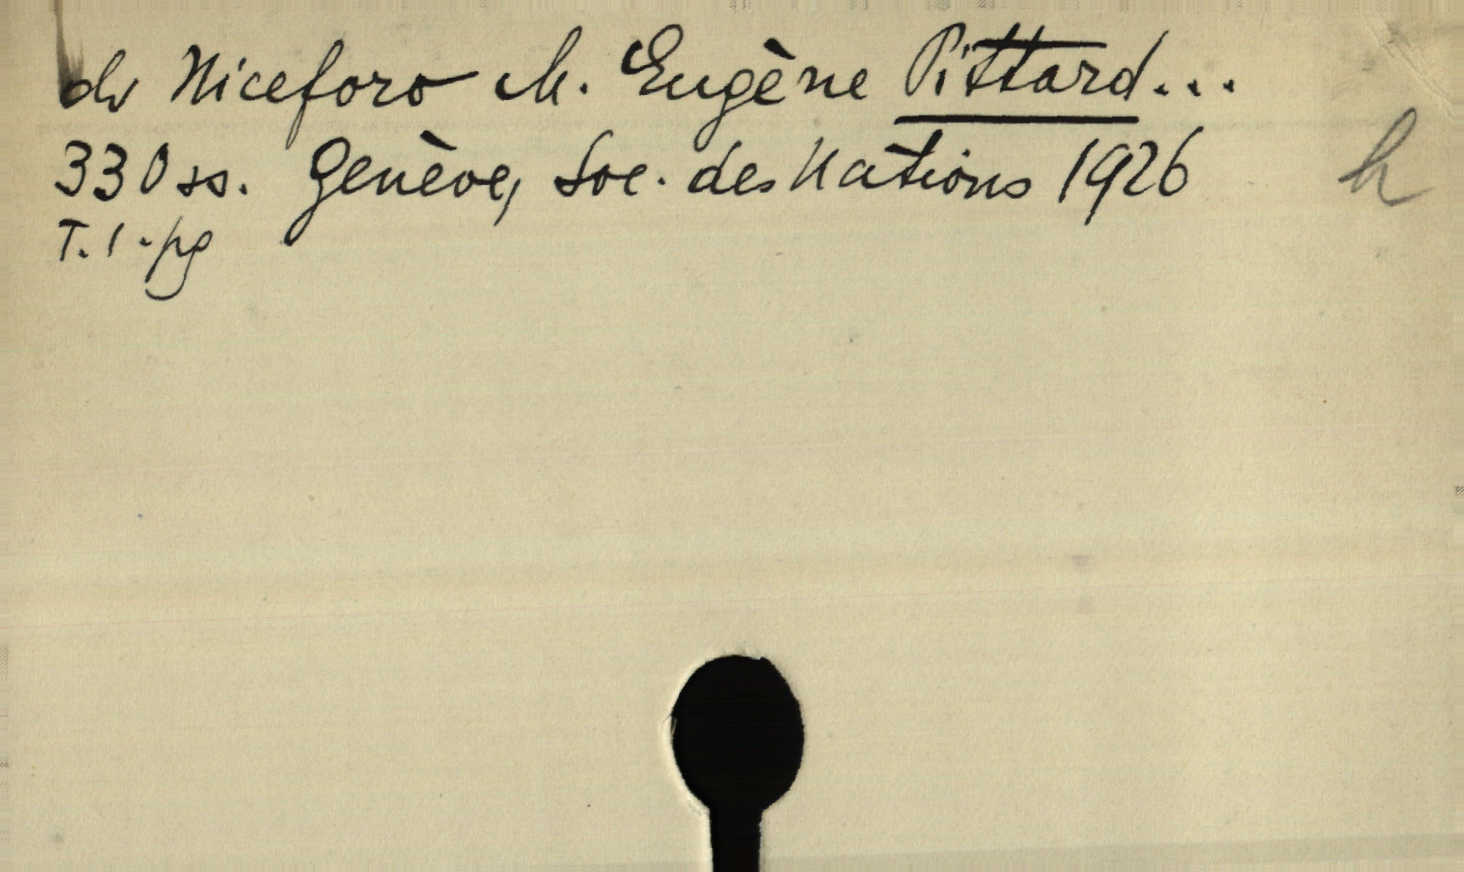 do Niceforo M. Eugène Pittard...
330 ss. Genève, Soc. des Nations 1926
h
T. 1 - pg